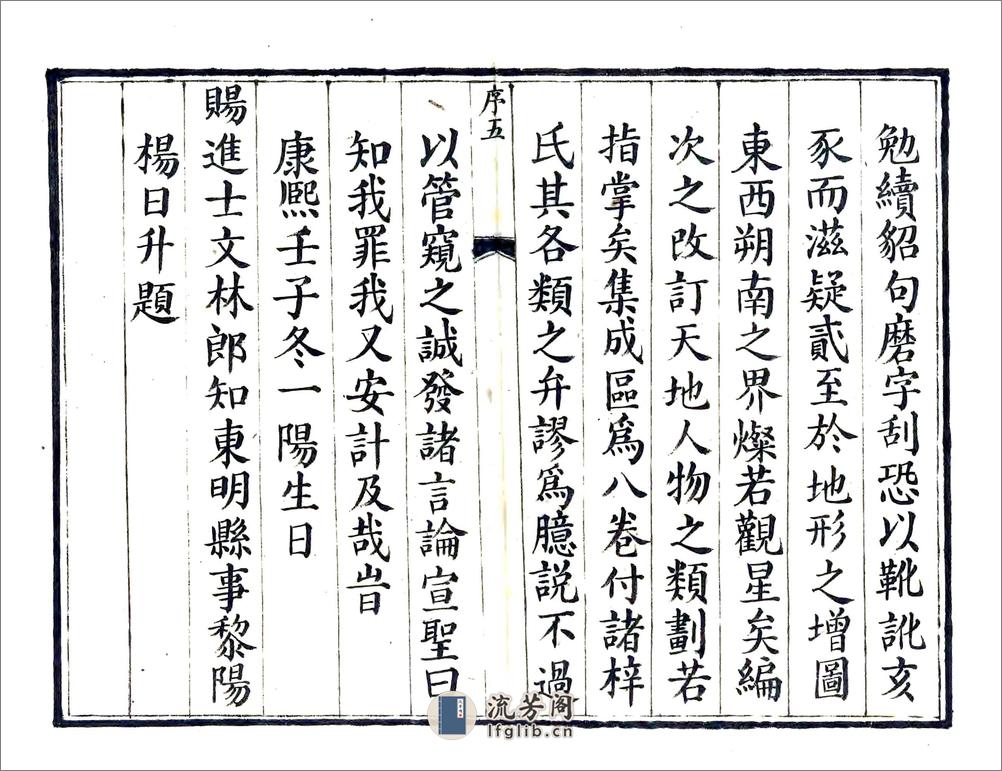 勉續貂句磨字刮恐以靴訛亥
豕而滋疑貳至於地形之增圖
東西朔南之界燦若觀星矣編
次之改訂天地人物之類劃若
指掌矣集成區爲八卷付諸梓
氏其各類之弁謬爲臆説不過
序五
以管窺之誠發諸言論宣聖曰
知我罪我又安計及哉旹
康熙壬子冬一陽生日
賜進士文林郎知東明縣事黎陽
楊日升題
流芳阁
lfglib.cn